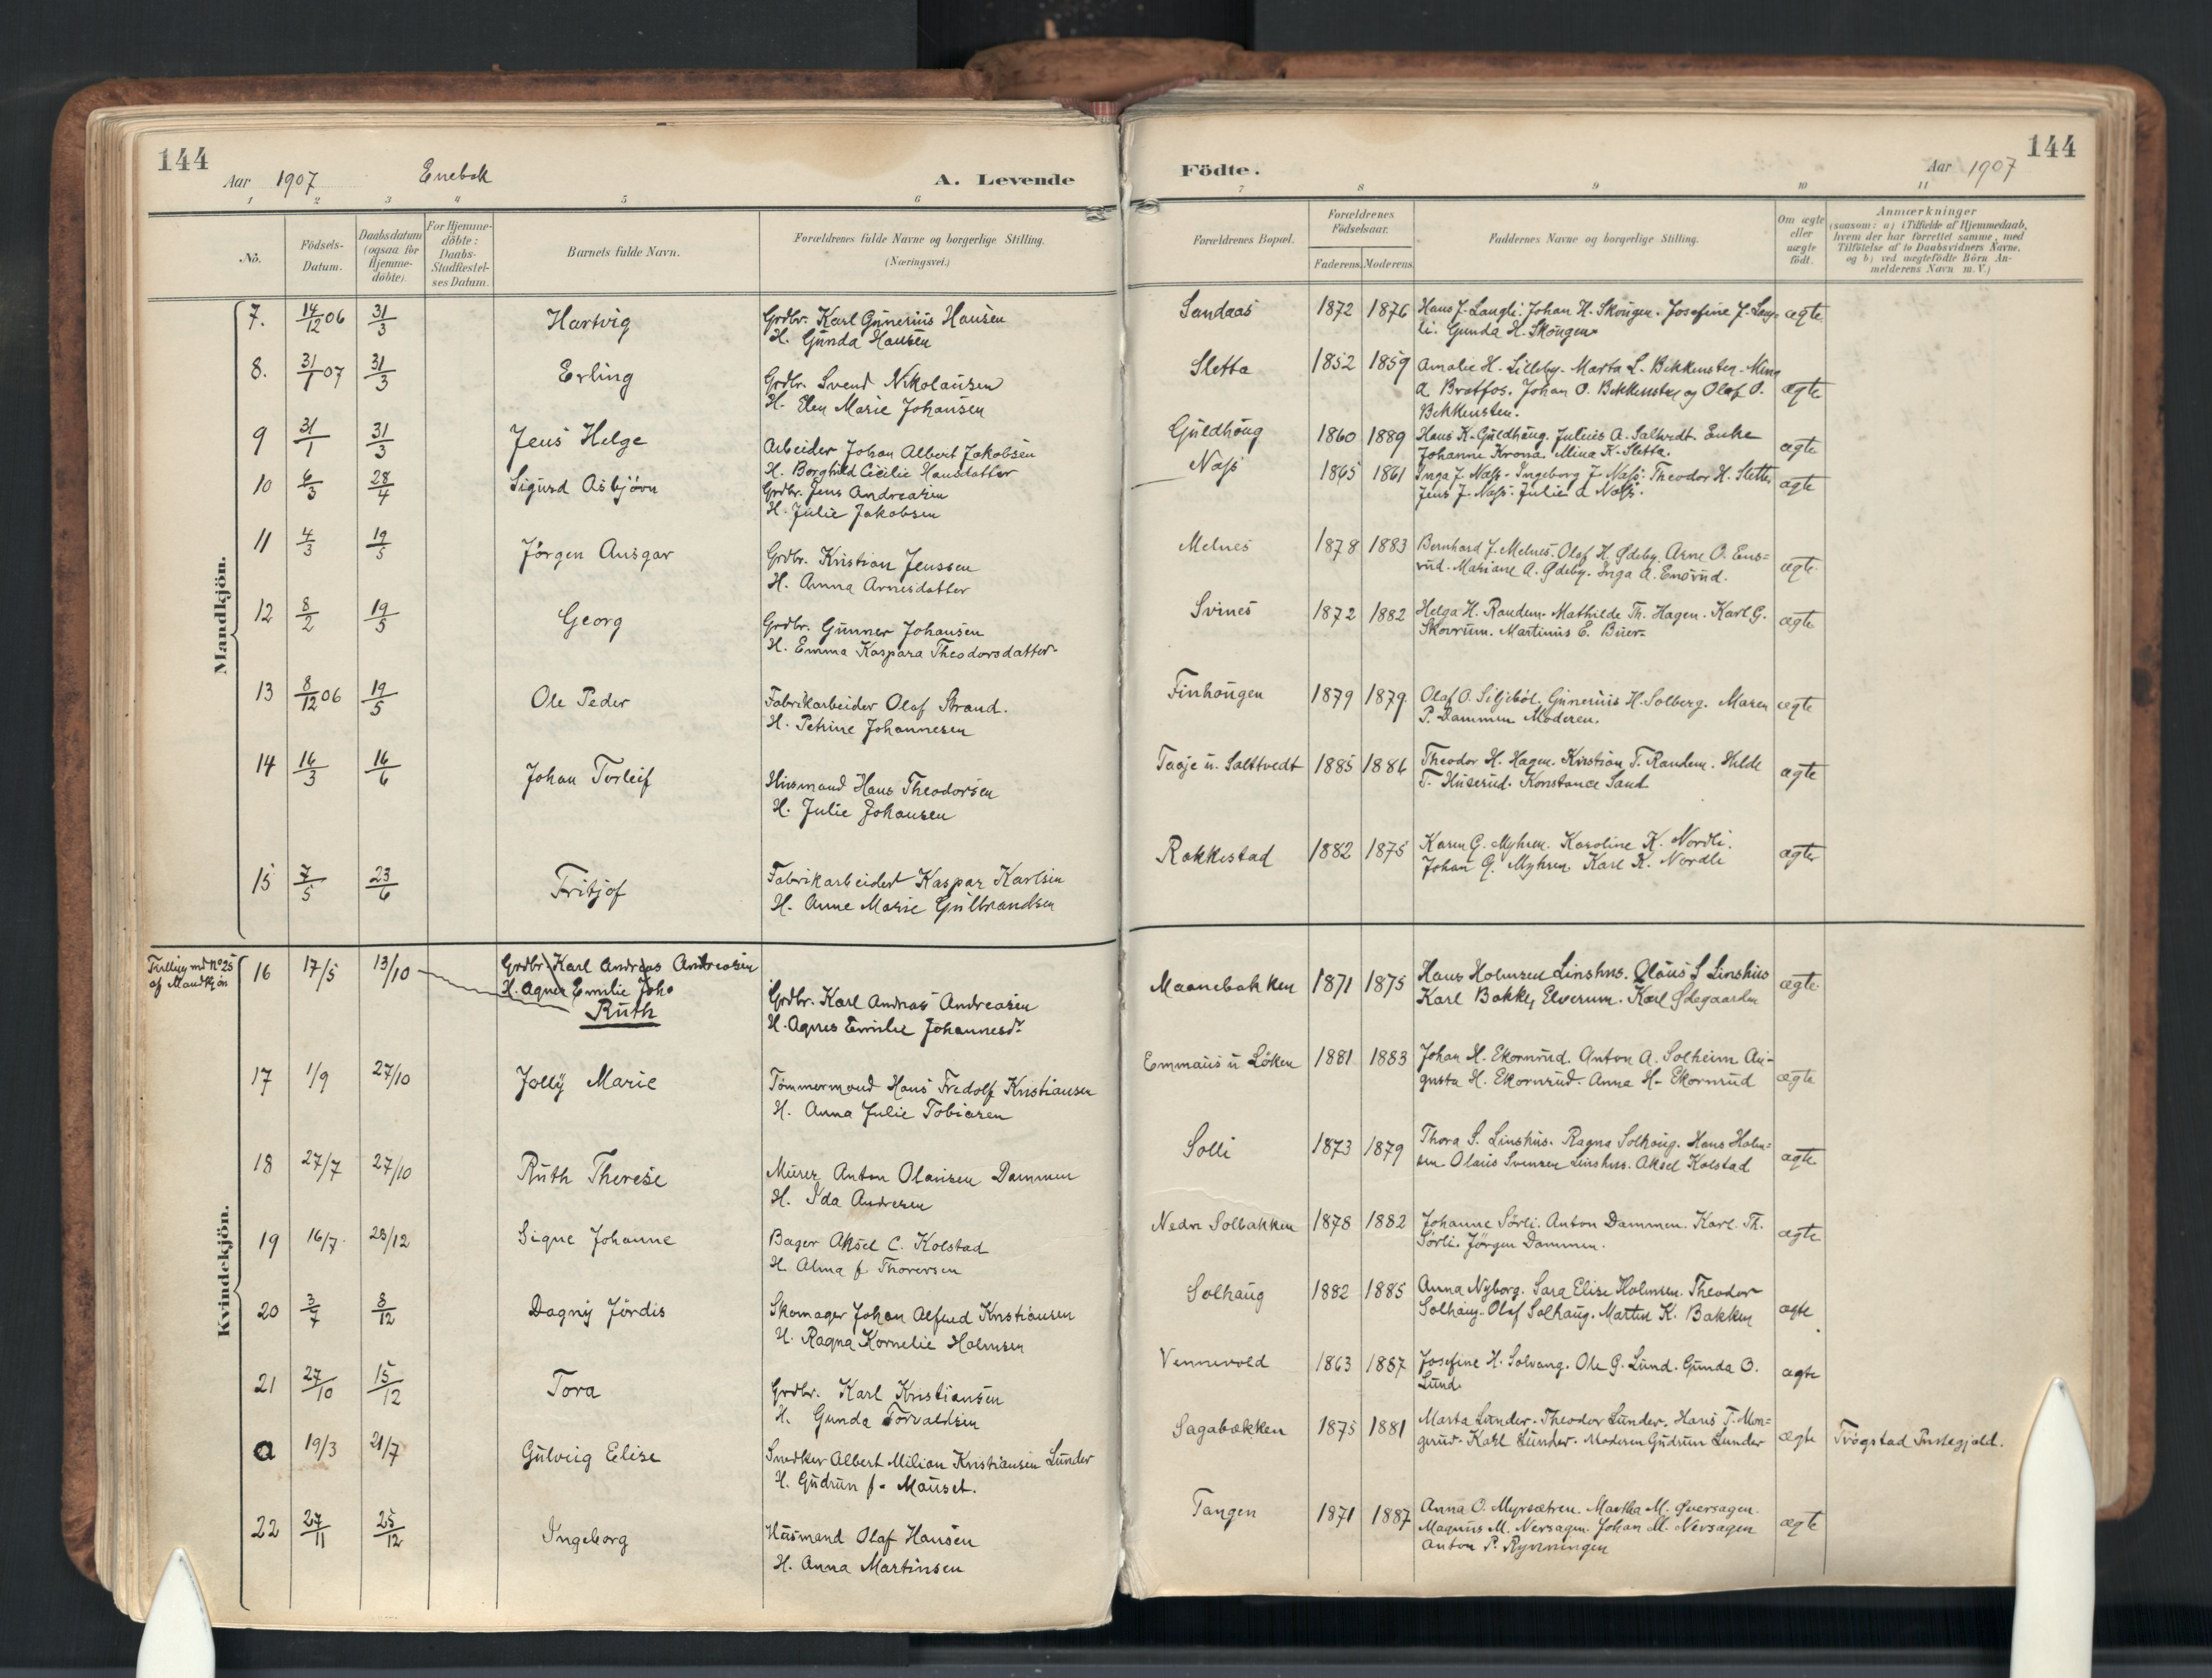 144
Aar 1907 Enebak A. Levende
1 2 3 4 5 6
No.
Födsels-
Datum.
Daabsdatum
(ogsaa for
Hjemme-
döbte).
For Hjemme-
döbte:
Daabs-
Stadfæstel-
ses Datum.
Barnets fulde Navn.
Forældrenes fulde Navne og borgerlige Stilling.
(Næringsvei.)
Mandkjön.
7. 14/12 06 31/3 Hartvig
Grdbr. Karl Gunerius Hansen
H. Gunda Hansen
8. 31/1 07 31/3 Erling
Grdbr. Svend Nikolausen
H. Elen Marie Johansen
9 31/1 31/3 Jens Helge
Arbeider Johan Albert Jakobsen
H. Borghild Cecilie Hansdatter
10 6/3 28/4 Sigurd Asbjörn
Grdbr. Jens Andreasen
H. Julie Jakobsen
11 4/3 19/5 Jörgen Ansgar
Grdbr. Kristian Jenssen
H. Anna Arnesdatter
12 8/2 19/5 Georg
Grdbr. Gunner Johansen
H. Emma Kaspara Theodorsdatter
13 8/12 06 19/5 Ole Peder
Fabrikarbeider Olaf Strand.
H. Petrine Johannesen
14 16/3 16/6 Johan Torleif
Husmand Hans Theodorsen
H. Julie Johansen
15 7/5 23/6 Fritjof
Fabrikarbeider Kaspar Karlsen
H. Anne Marie Gulbrandsen
Kvindekjön.
Tvilling med No 25
af Mandkjön
16 17/5 13/10 Grdbr. Karl Andreas Andreasen
H. Agnes Emilie Joho
Ruth
Grdbr. Karl Andreas Andreasen
H. Agnes Emilie Johannesdr
17 1/9 27/10 Jolly Marie
Tömmermand Hans Fredolf Kristiansen
H. Anna Julie Tobiasen
18 27/7 27/10 Ruth Therese
Murer Anton Olausen Dammen
H. Ida Andresen
19 16/7 28/12 Signe Johanne
Bager Aksel C. Kolstad
H. Alma f. Thoresen
20 3/7 8/12 Dagny Jördis
Skomager Johan Alfred Kristiansen
H. Ragna Kornelie Holmsen
21 27/10 15/12 Tora
Grdbr. Karl Kristiansen
H. Gunda Torvaldsen
a 19/3 21/7 Gulveig Elise
Snedker Albert Milian Kristiansen Lunder
H. Gudrun f. Mauset.
22 27/11 25/12 Ingeborg
Husmand Olaf Hansen
H. Anna Martinsen
144
Födte. Aar 1907
7 8 9 10 11
Forældrenes Bopæl.
Forældrenes
Födselsaar.
Faderens. Moderens.
Faddernes Navne og borgerlige Stilling.
Om ægte
eller
uægte
födt.
Anmærkninger
(saasom: a) i Tilfælde af Hjemmedaab,
hvem der har forrettet samme, med
Tilföielse af to Daabsvidners Navne,
og b) ved uægtefödte Börn An-
melderens Navn m. V.)
Sandaas 1872 1876 Hans J. Langli. Johan H. Skougen. Josefine J. Lang-
li. Gunda H. Skougen. ægte
Sletta 1852 1859 Amalie H. Lilleby. Marta L. Bekkensten. Mina
A. Bratfos. Johan O. Bekkensten og Olaf O.
Bekkensten. ægte
Guldhaug 1860 1889 Hans K. Guldhaug. Julius A. Saltvedt. Enke
Johanne Krona. Mina K. Sletta. ægte
Næss 1865 1861 Inga J. Næss. Ingeborg J. Næss. Theodor H. Sletta
Jens J. Næss. Julie A. Næss. ægte
Melnes 1878 1883 Bernhard J. Melnes. Olaf H. Ødeby. Arne O. Ens=
rud. Mariane A. Ødeby. Inga A. Ensrud. ægte
Svines 1872 1882 Helga H. Randem. Mathilde Th. Hagen. Karl G.
Skovrum. Martinus E. Buer. ægte
Finhougen 1879 1879. Olaf O. Siljeböl. Gunerius H. Solberg. Maren
P. Dammen Moderen. ægte
Taaje u. Saltvedt 1885 1886 Theodor H. Hagen. Kristian T. Randem. Hilda
T. Huserud. Konstance Sand ægte
Rakkestad 1882 1875 Karen G. Myhren. Karoline K. Nordli.
Johan G. Myhren. Karl K. Nordli ægte
Maanebakken 1871 1875 Hans Holmsen Linshus. Olaus S Linshus
Karl Bakke, Elverum. Karl Ødegaarden ægte
Emmaus u Löken 1881 1883 Johan H. Ekornrud. Anton A. Solheim Au-
gusta H. Ekornrud. Anna H. Ekornrud ægte
Solli 1873 1879 Thora S. Linshus. Ragna Solhaug. Hans Holm=
sen Olaus Svensen Linshus. Aksel Kolstad ægte
Nedre Solbakken 1878 1882 Johanne Sörli. Anton Dammen. Karl. Th.
Sörli. Jörgen Dammen. ægte
Solhaug 1882 1885 Anna Nyborg. Sara Elise Holmsen. Theodor
Solhaug. Olaf Solhaug. Marten K. Bakken ægte
Vennevold 1863 1887 Josefine H. Solvang. Ole G. Lund. Gunda O.
Lund. ægte
Sagabækken 1875 1881 Marta Lunder. Theodor Lunder. Hans T. Mon=
gerud. Karl Lunder. Moderen Gudrun Lunder ægte Trögstad Præstegjæld.
Tangen 1871 1887 Anna O. Myrsætren. Martha M. Øversagen.
Magnus M. Nersagen. Johan M. Nersagen
Anton P. Rynningen ægte